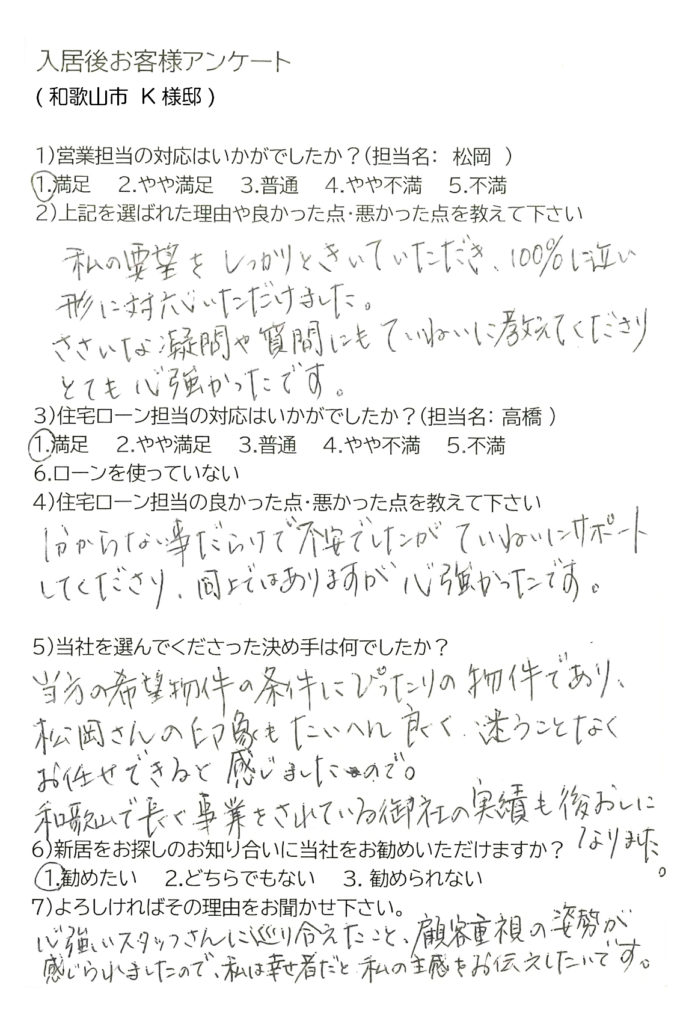 入居後お客様アンケート
(和歌山市 K様邸)
1)営業担当の対応はいかがでしたか？(担当名: 松岡 )
1.満足 2.やや満足 3.普通 4.やや不満 5.不満
2)上記を選ばれた理由や良かった点・悪かった点を教えて下さい
私の要望をしっかりときいていただき、100%に近い
形に対応いただけました。
ささいな疑問や質問にもていねいに教えてくださり
とても心強かったです。
3)住宅ローン担当の対応はいかがでしたか？(担当名: 高橋 )
1.満足 2.やや満足 3.普通 4.やや不満 5.不満
6.ローンを使っていない
4)住宅ローン担当の良かった点・悪かった点を教えて下さい
分からない事だらけで不安でしたがていねいにサポート
してくださり、同上ではありますが心強かったです。
5)当社を選んでくださった決め手は何でしたか？
当方の希望物件の条件にぴったりの物件であり、
松岡さんの印象もたいへん良く、迷うことなく
お任せできると感じましたので。
和歌山で長く事業をされている御社の実績も後おしに
なりました。
6)新居をお探しのお知り合いに当社をお勧めいただけますか？
1.勧めたい 2.どちらでもない 3. 勧められない
7)よろしければその理由をお聞かせ下さい。
心強いスタッフさんに巡り合えたこと、顧客重視の姿勢が
感じられましたので、私は幸せ者だと私の主感をお伝えしたいです。